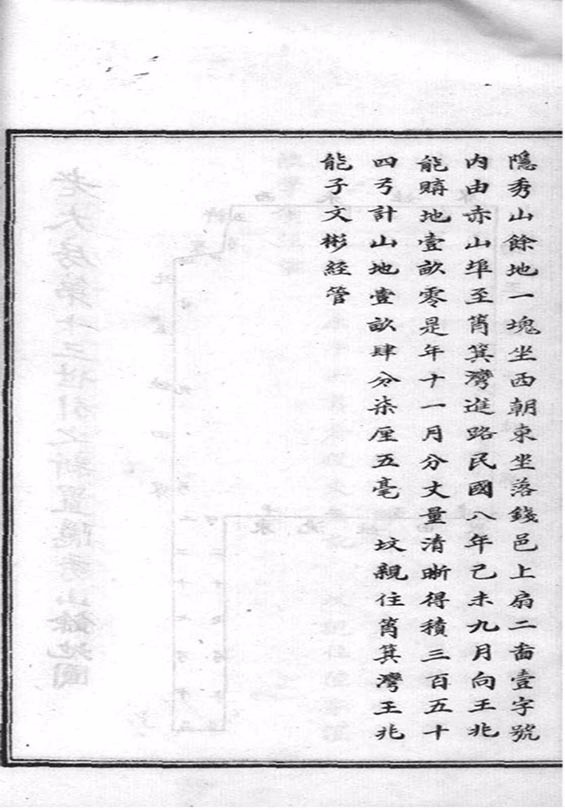 隱秀山餘地一塊坐西朝東坐落錢邑上扇二啚壹字號
內由赤山埠至筲箕灣進路民國八年己未九月向王兆
能購地壹畝零是年十一月分丈量清晰得積三百五十
四弓計山地壹畝肆分柒厘五毫　坟親住筲箕灣王兆
能子文彬經管